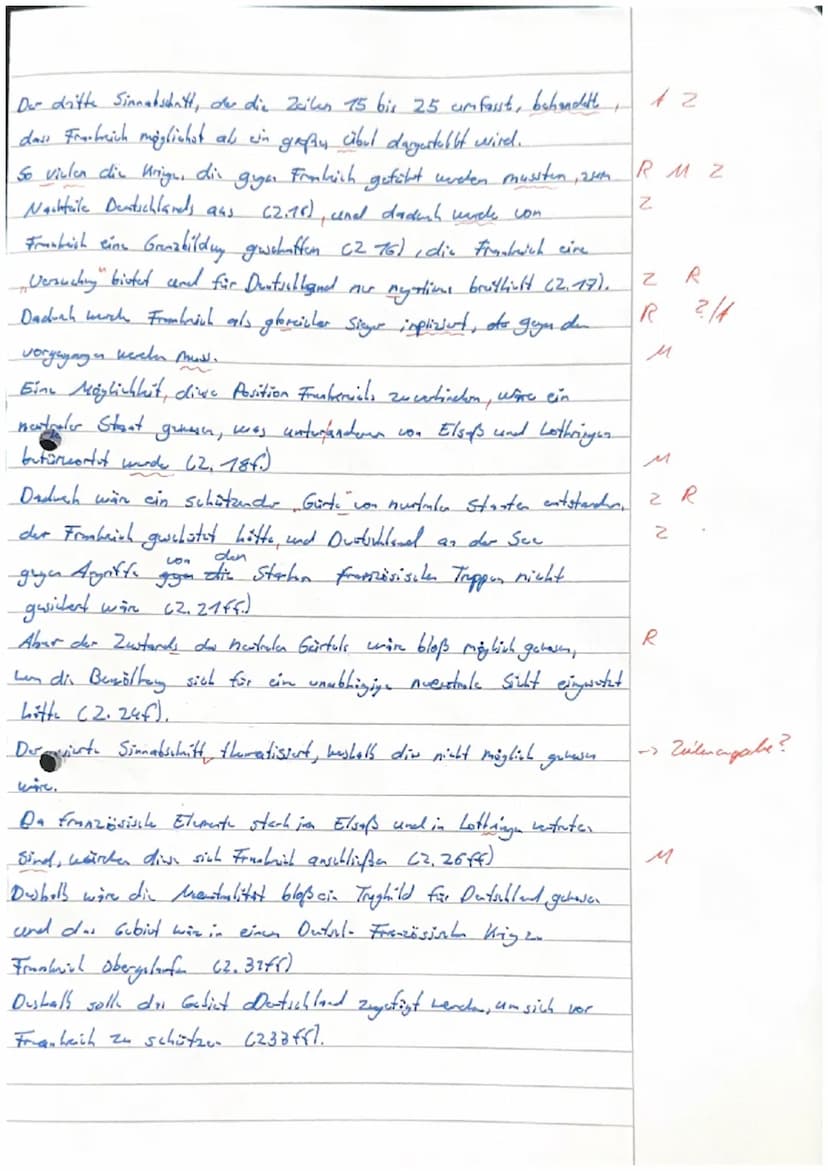 Der dritte Sinnabschnitt, der die Zeilen 15 bis 25 umfasst, behandelt, A Z
dass Frankreich möglichst als ein großes übel dargestellt wird.
So vielen die Krige, die gegen Frankreich geführt werden mussten, zum R M Z
Nachteile Deutschlands aus (Z.16), und dadurch wurde von Z
Frankreich eine Grenzbildung geschaffen (Z 16), die Frankreich eine
„Versuchung" bietet und für Deutschland nur (Z.17). Z R
Dadurch Frankreich als Sieger inpliziert, gegen den R ?/A
vorgegangen werden muss. M
Eine Möglichkeit, diese Position Frankereichs zu verhindern, wäre ein
neutraler Staat gewesen, was von Elsaß und Lothringen
befürwortet wurde (Z. 18f.) M
Dadurch wär ein schützender „Gürtel" von neutralen Staaten entstanden, Z R
der Frankreich geschützt hätte, und Deutschland an der See Z
gegen Angriffe von den Starken französischen Truppen nicht
gesichert wär (Z. 21ff.)
Aber der Zustands des neutralen Gürtels wäre bloß möglich gewesen, R
wen die Bevölkerung sich für ein Sicht eingesetzt
hätte (Z. 24f).
Der vierte Sinnabschnitt, thematisiert, weshalb dies nicht möglich gewesen -> Zeilenangabe?
wäre.
Da Französische Elemente stark im Elsaß und in Lothringen vertreten
Sind, würden diese sich Frankreich anschließen (Z. 26ff) M
Deshalb wäre die Neutralität bloß ein Trugbild für Deutschland gewesen
und das Gebiet wär in einen Deutsch- Französischen Krig zu
Frankreich übergelaufen (Z. 32ff)
Deshalb solle das Gebiet Deutschland zugefügt werden, um sich vor
Frankreich zu schützen (Z33ff).